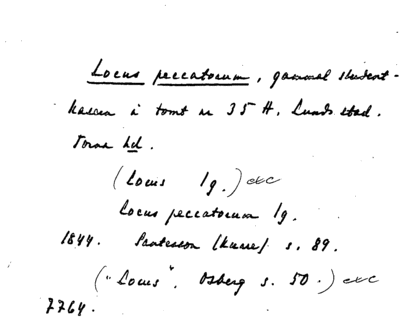 Locus peccatorum, gammal student-
kasern å tomt nr 35 A. Lunds stad.
Torna hd.
(Locus lg.) exc
Locus peccatorum lg.
1844. Santesson s. 89.
("Locus". Osberg s. 50.) exc
7764.